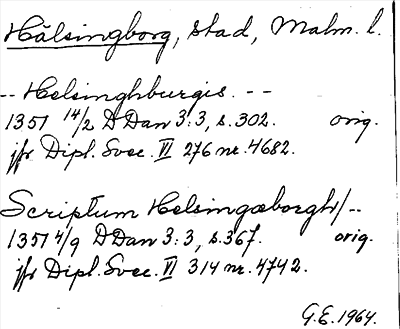 Hälsingborg, stad, Malm. l.
-- Helsinghburgis. --
1351 14/2 D Dan 3:3, s. 302. orig.
jfr Dipl. Svec. VI 276 nr. 4682.
Scriptum Helsingæborgh/--
1351 4/9 D Dan 3:3, s. 367. orig.
jfr Dipl. Svec. VI 314 nr. 4742.
G.E. 1964.